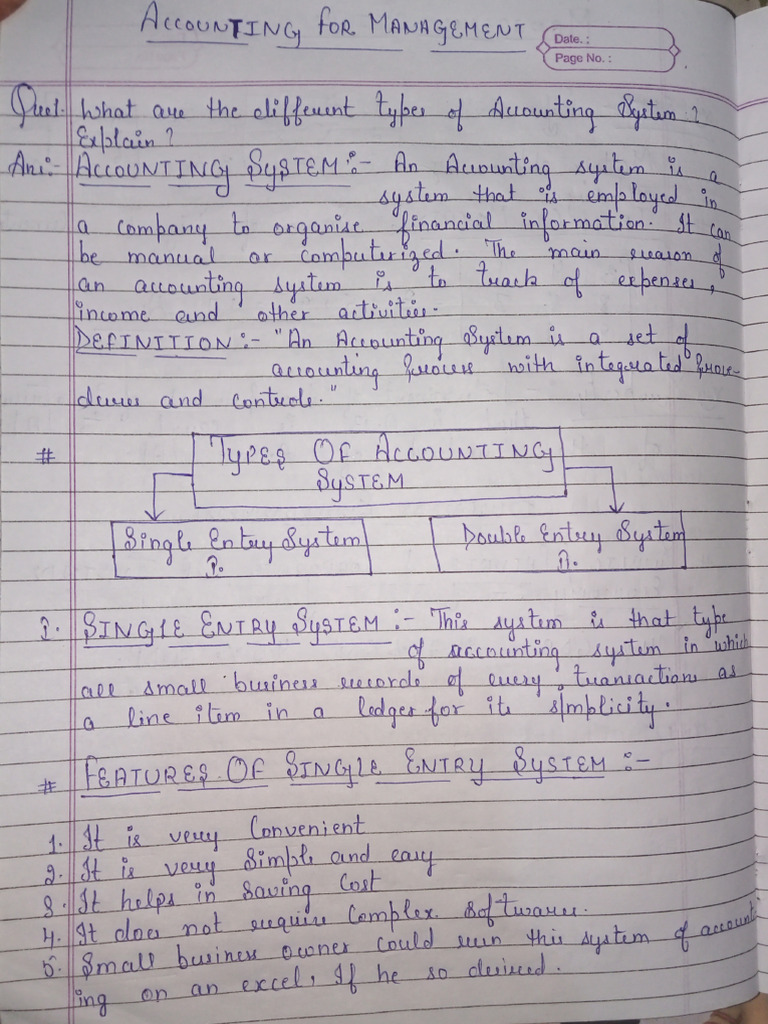 ACCOUNTING FOR MANAGEMENT
Date. :
Page No. :
Que1. What are the different types of Accounting System ?
Explain ?
Ans:- ACCOUNTING SYSTEM :- An Accounting system is a
system that is employed in
a company to organise financial information. It can
be manual or computerized. The main reason of
an accounting system is to track of expenses,
income and other activities.
DEFINITION :- "An Accounting System is a set of
accounting process with integrated proce-
dures and controls."
# TYPES OF ACCOUNTING
SYSTEM
Single Entry System
I.
Double Entry System
II.
I. SINGLE ENTRY SYSTEM :- This system is that type
of accounting system in which
all small business records of every transactions as
a line item in a ledger for its simplicity.
# FEATURES OF SINGLE ENTRY SYSTEM :-
1. It is very Convenient
2. It is very Simple and easy
3. It helps in Saving Cost
4. It does not require Complex Softwares.
5. Small business owner could run this system of account-
ing on an excel, If he so desired.